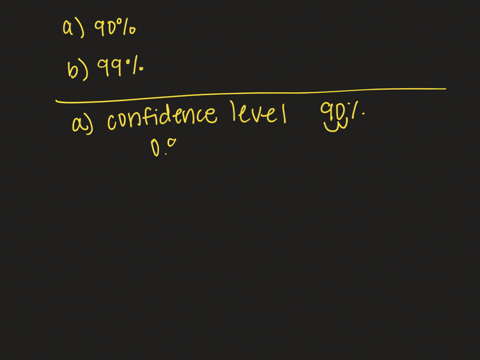 a) 90%
b) 99%
a) confidence level 90%.
0.9